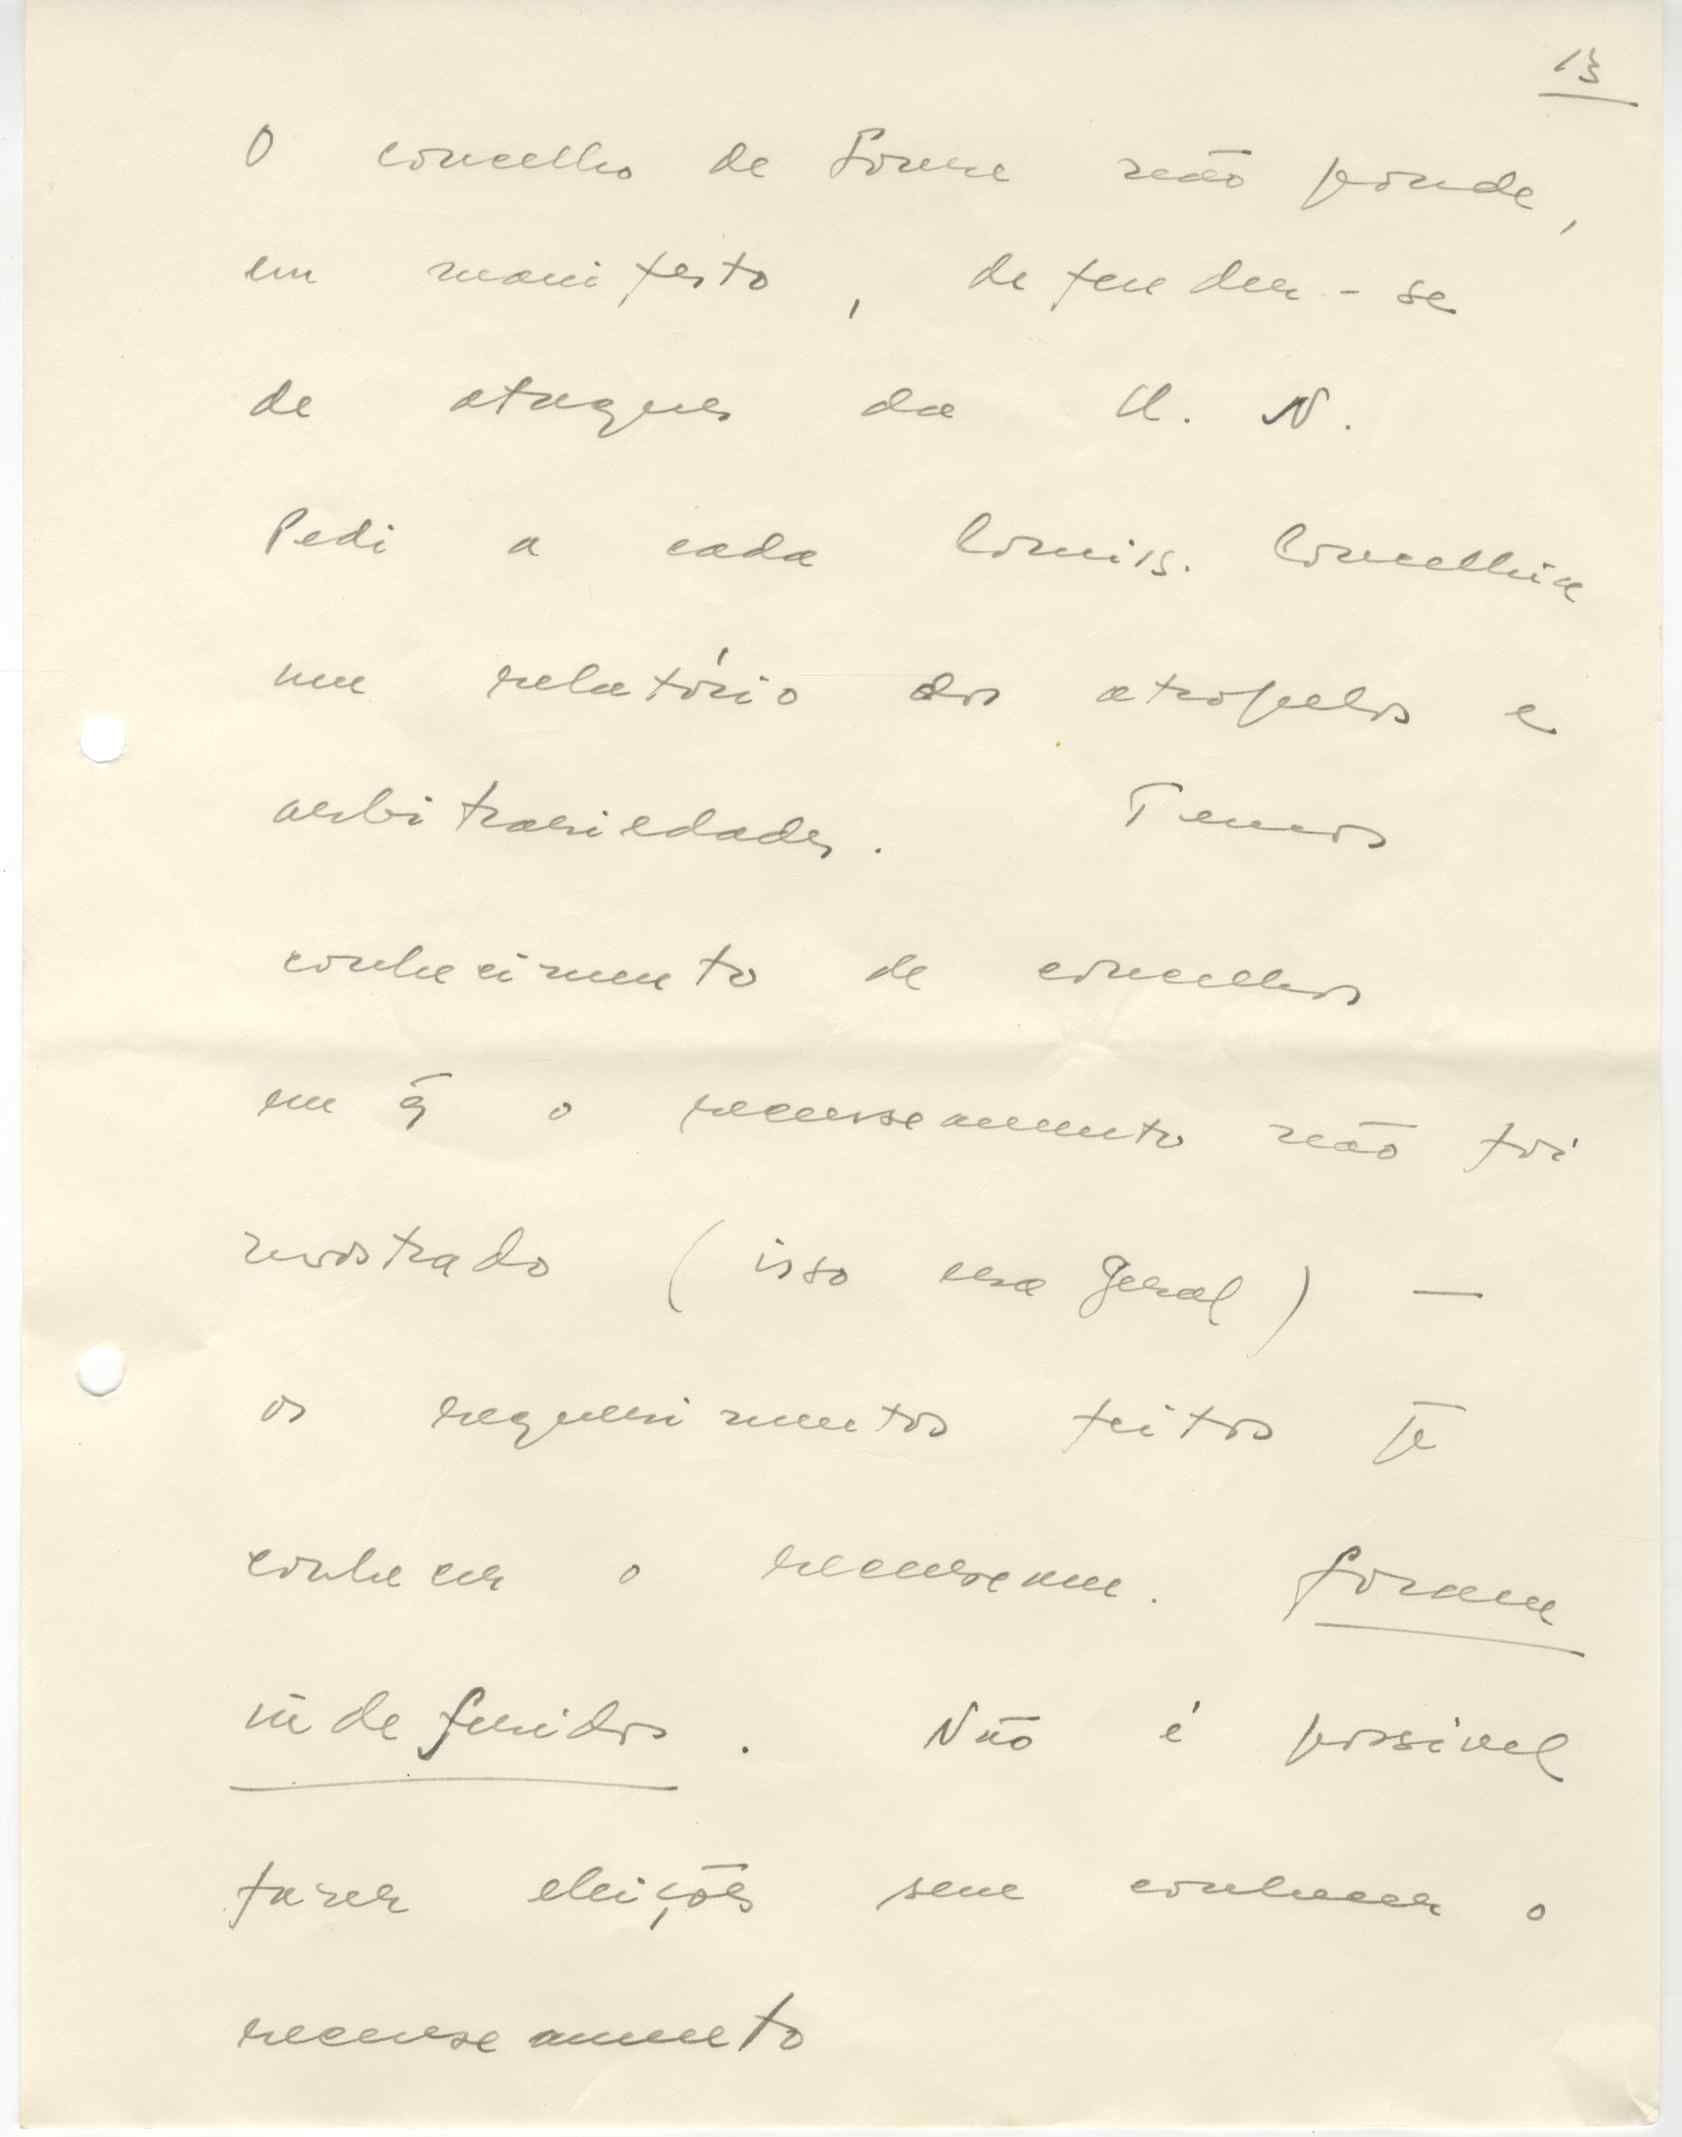 13
O concelho de Soure não poude,
em manifesto, defender-se
de ataques da U. N.
Pedi a cada Comiss. Concelhia
um relatório dos atropelos e
arbitrariedades. Temos
conhecimento de concelhos
em q̃ o recenseamento não foi
mostrado (isso era geral) —
os requerimentos feitos p̄
conhecer o recenseam. foram
indeferidos. Não é possivel
fazer eleições sem conhecer o
recenseamento